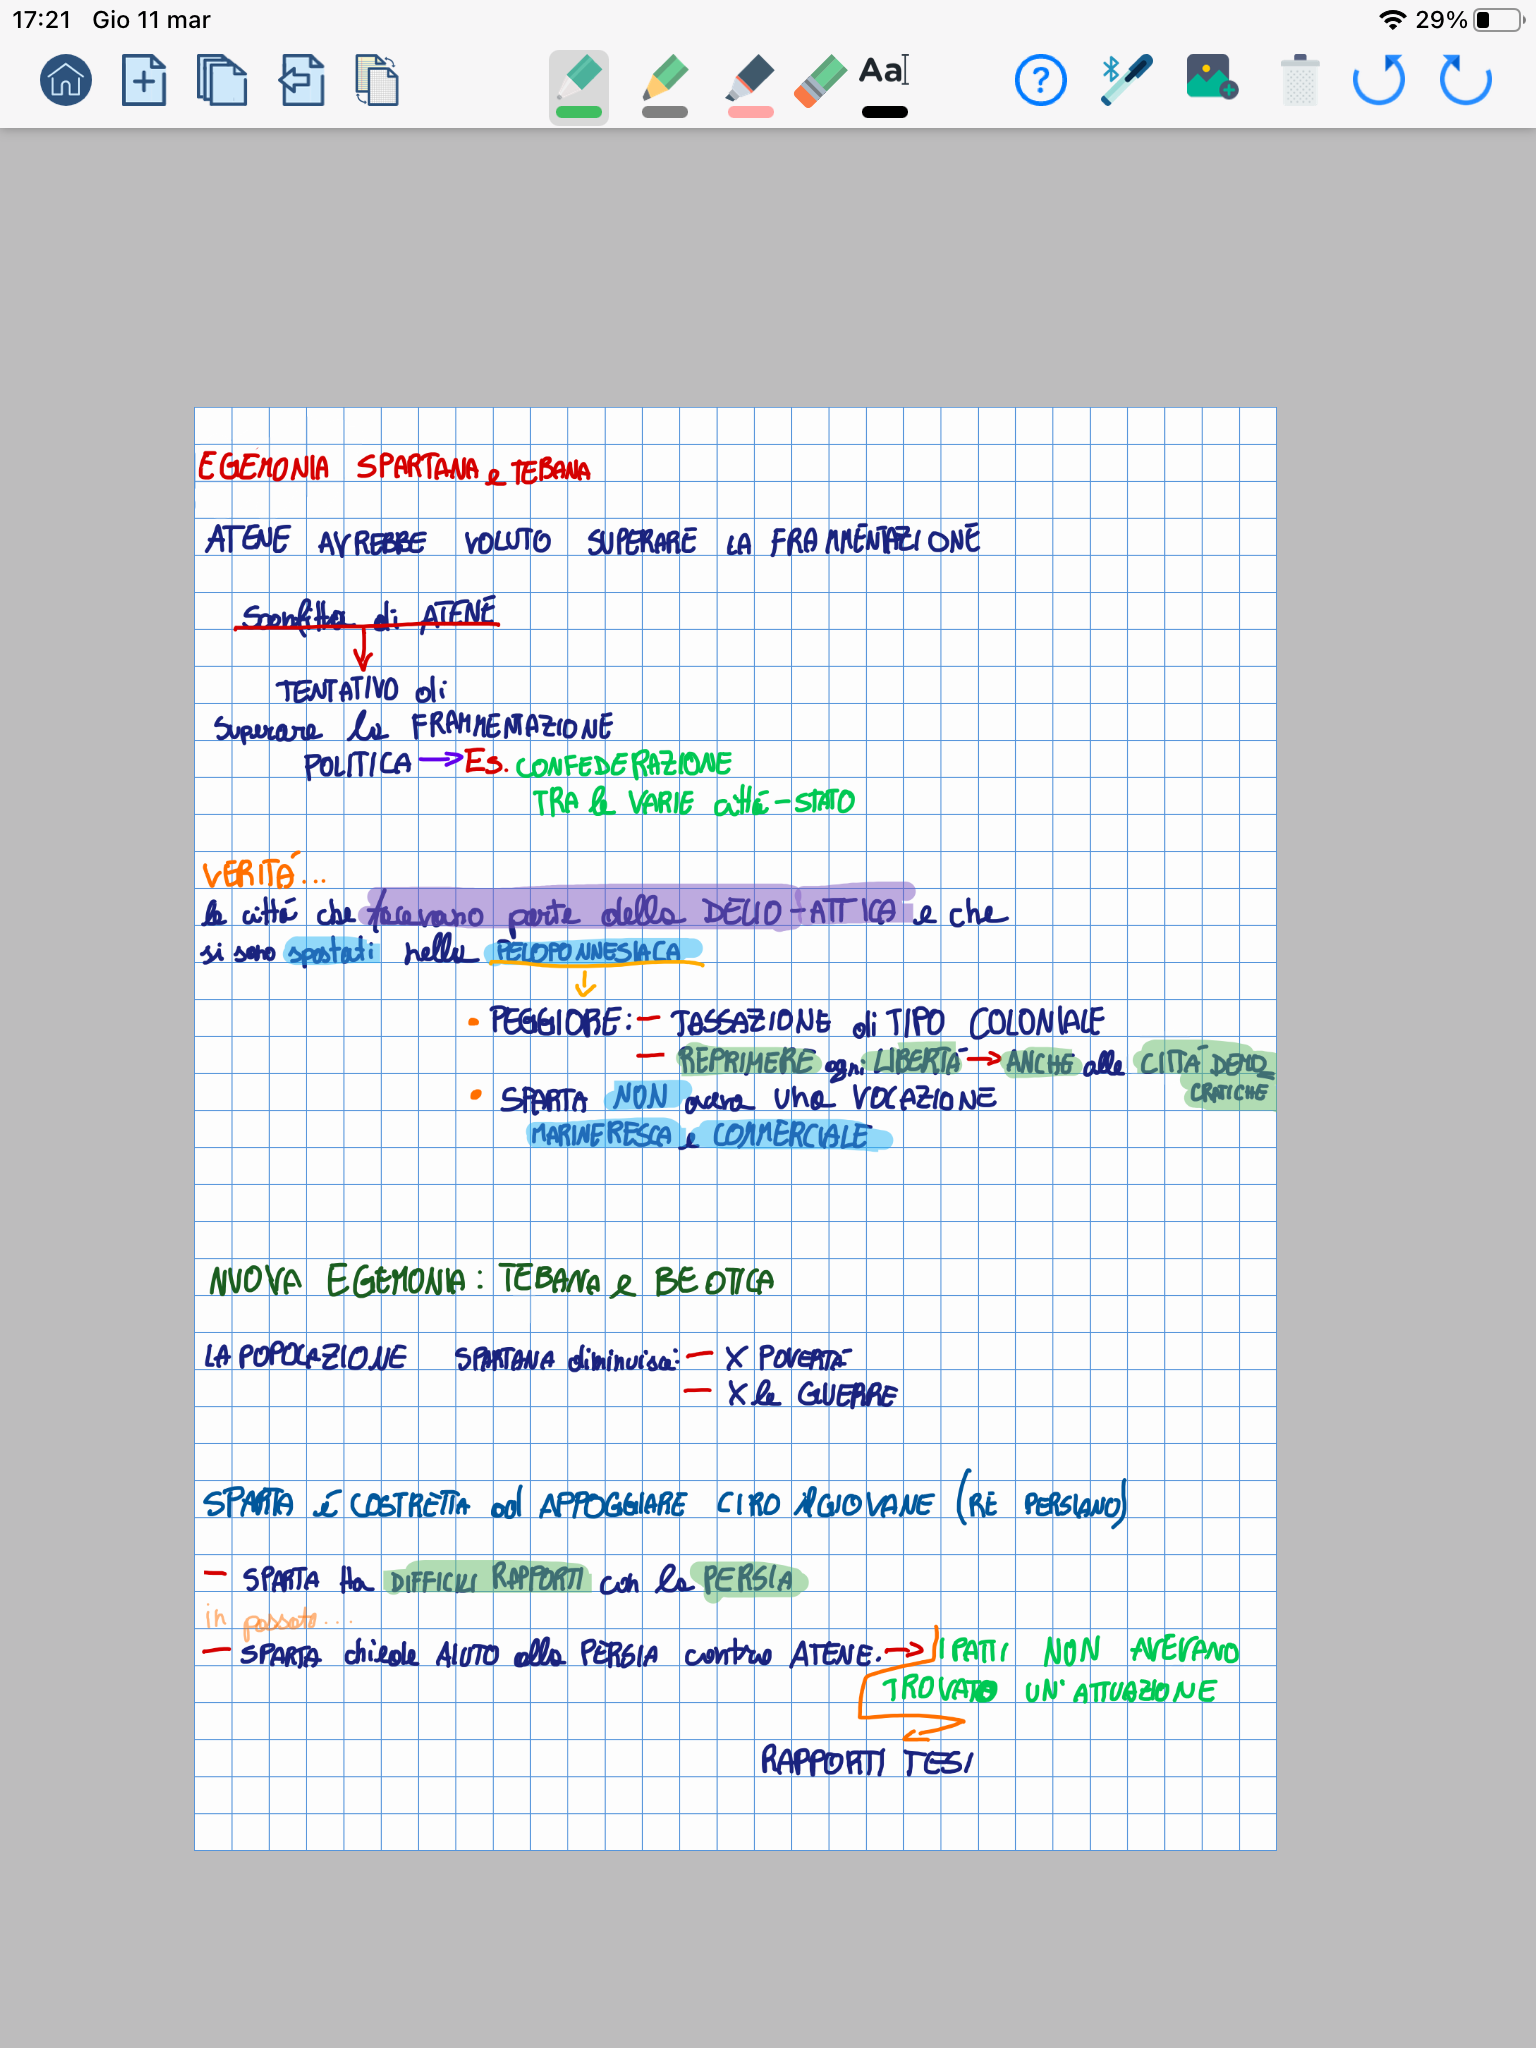 17:21 Gio 11 mar 29%
Aa
?
EGEMONIA SPARTANA e TEBANA
ATENE AVREBBE VOLUTO SUPERARE LA FRAMMENTAZIONE
Sconfitta di ATENE
TENTATIVO di
superare la FRAMMENTAZIONE
POLITICA → Es. CONFEDERAZIONE
TRA le VARIE città-STATO
VERITÁ...
le città che facevano parte della DELIO-ATTICA e che
si sono spostati nella PELOPONNESIACA
• PEGGIORE: — TASSAZIONE di TIPO COLONIALE
— REPRIMERE ogni LIBERTÁ → ANCHE alle CITTÁ DEMO
CRATICHE
• SPARTA NON aveva una VOCAZIONE
MARINERESCA e COMMERCIALE
NUOVA EGEMONIA: TEBANA e BEOTICA
LA POPOLAZIONE SPARTANA diminuisce: — X POVERTÁ
— X le GUERRE
SPARTA é COSTRETTA ad APPOGGIARE CIRO il GIOVANE (RE PERSIANO)
— SPARTA ha DIFFICILI RAPPORTI con la PERSIA
in passato...
— SPARTA chiede AIUTO alla PERSIA contro ATENE. → I PATTI NON AVEVANO
TROVATO UN'ATTUAZIONE
RAPPORTI TESI